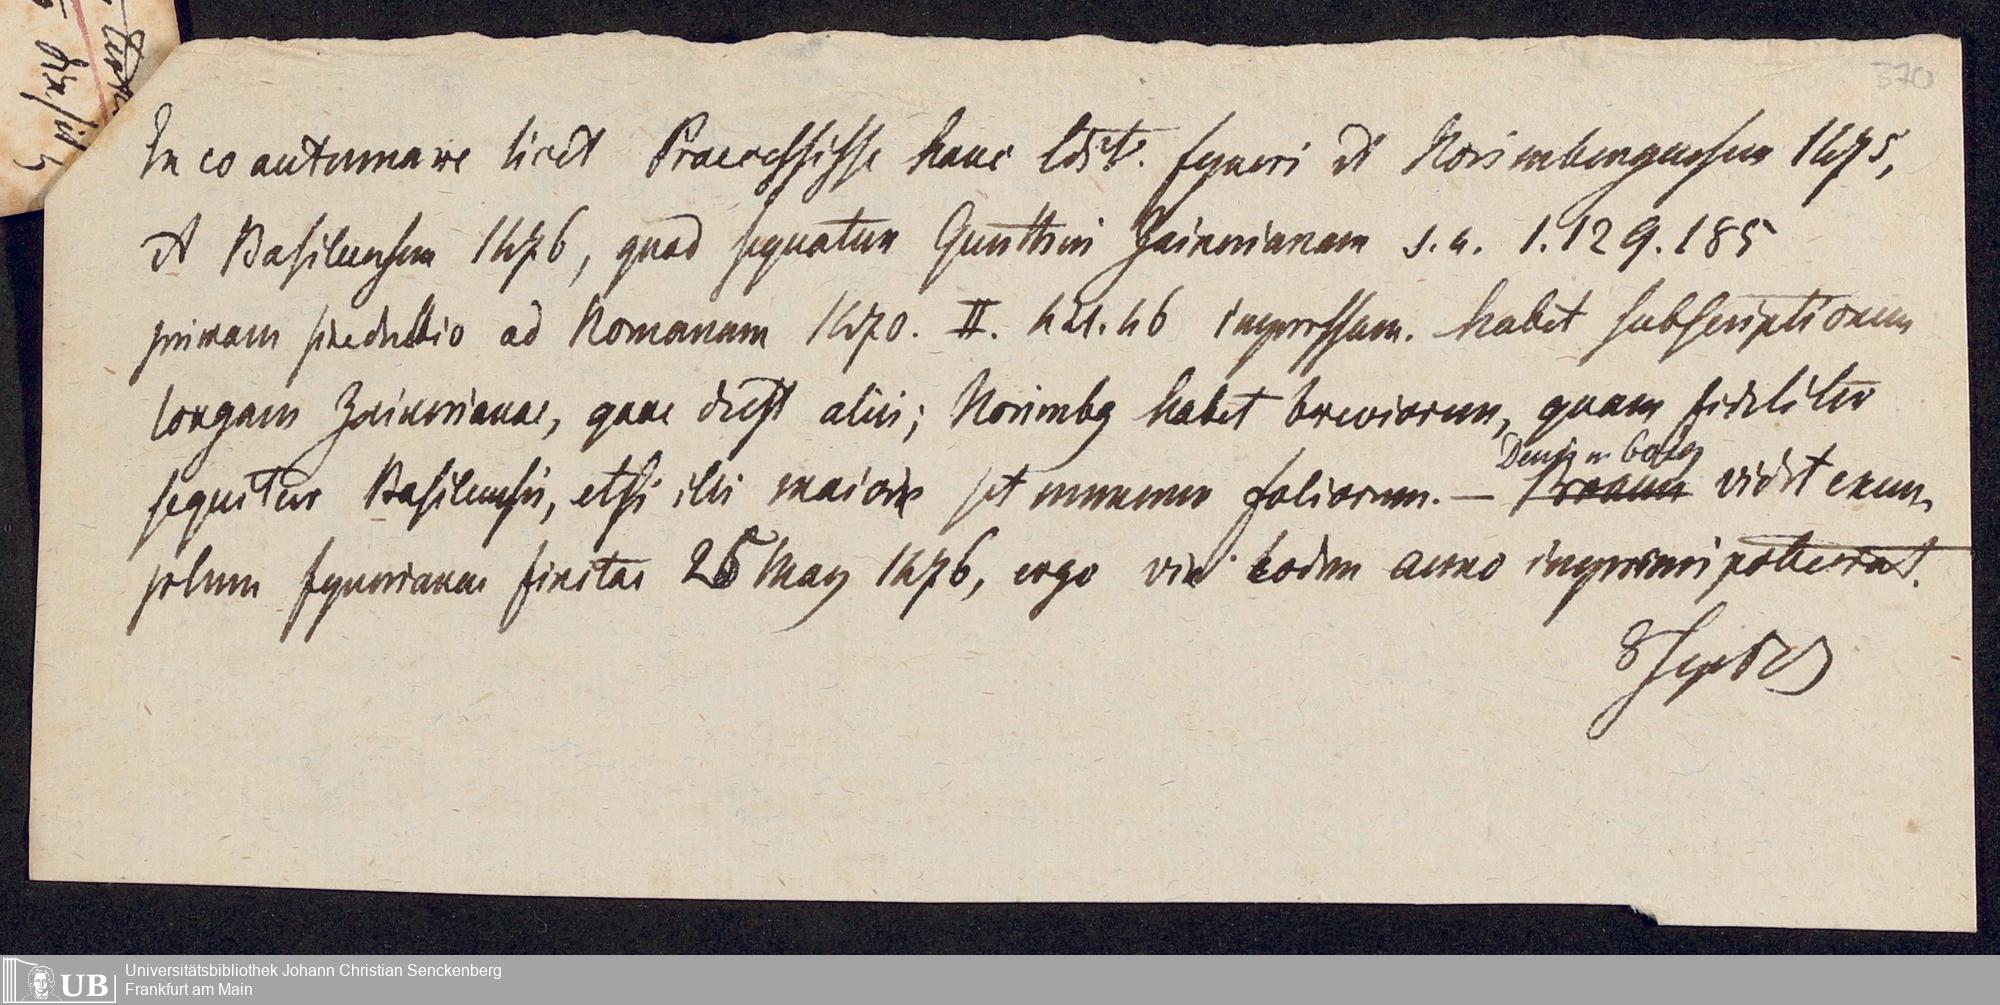 370
In eo autumare licet Praecessisse hanc Edit. fyneri et Norimbergensem 1475,
et Basileensem 1476, quod sequatur Guntheri Zainerianam s. a. 1. 129. 185
primam ad Romanam 1470. II. 421. 46 impressam. habet subscriptionem
longam Zainerianae, quae deest aliis; Norimbg habet breviorem, quam fideliter
sequitur Basileensis, etsi illi maioris sit numerus foliorum. — Denis in vidit exem
plum fynerianae finitae May 1476, ergo vix eodem anno imprimi potuerat.
Universitätsbibliothek Johann Christian Senckenberg
UB Frankfurt am Main